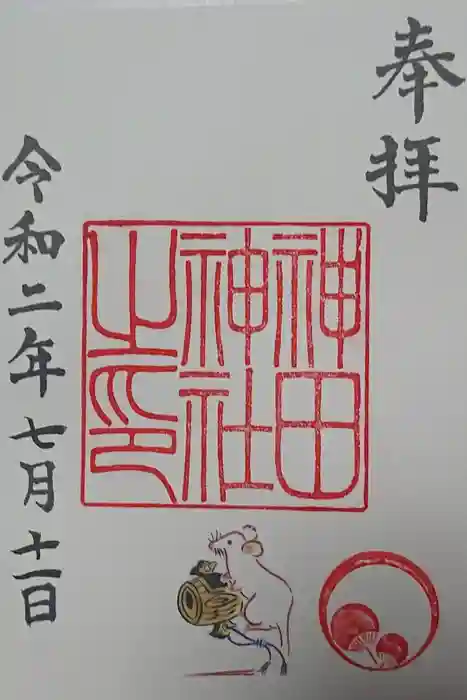 奉拝
神田
神社
之印
令和二年七月十一日